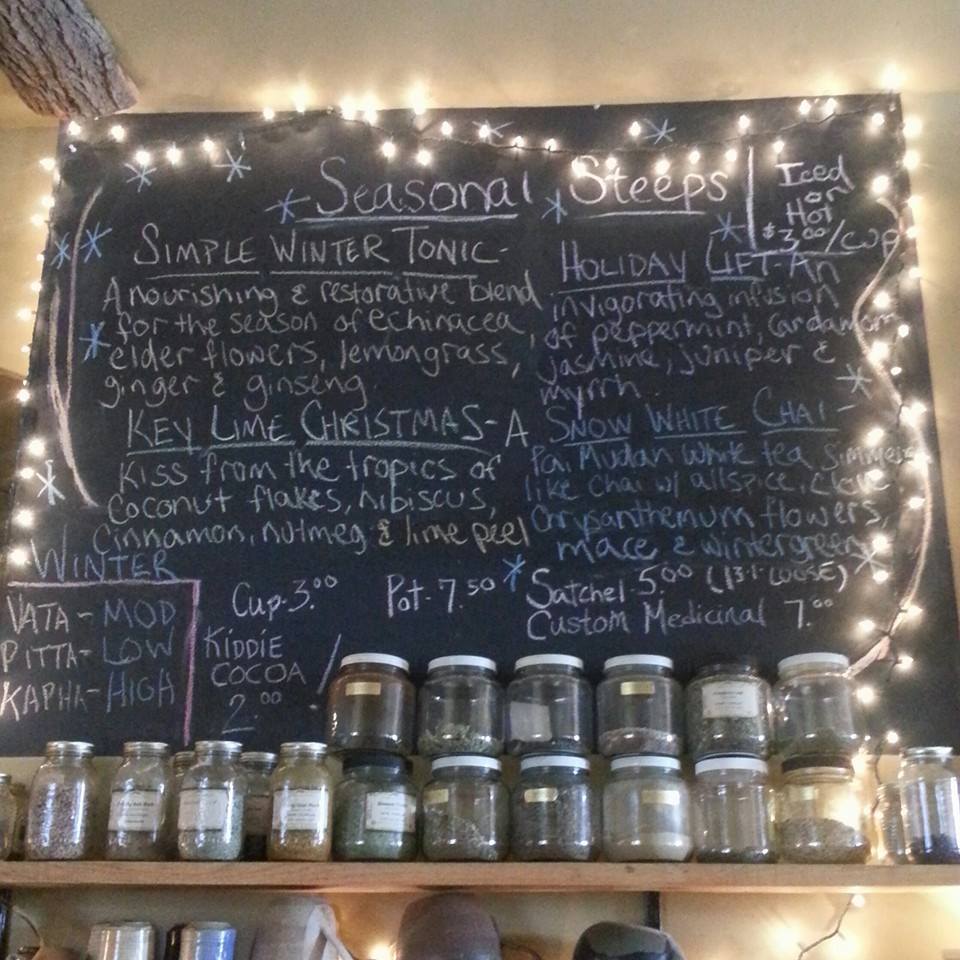 Seasonal Steeps
Iced
or
Hot
$3.00/cup
SIMPLE WINTER TONIC-
A nourishing & restorative blend
for the season of echinacea,
elder flowers, lemongrass,
ginger & ginseng
KEY LIME CHRISTMAS- A
Kiss from the tropics of
Coconut flakes, hibiscus,
Cinnamon, nutmeg & lime peel
HOLIDAY LIFT- An
invigorating infusion
of peppermint, Cardamom
Jasmine, juniper &
myrrh
SNOW WHITE CHAI-
Pai Mudan white tea simmers
like chai w/ allspice, clove
Chrysanthemum flowers,
mace & wintergreen
WINTER
VATA- MOD
PITTA- LOW
KAPHA- HIGH
Cup-3.00
Pot-7.50
KIDDIE
COCOA
2.00
Satchel 5.00 (LOOSE)
Custom Medicinal 7.00